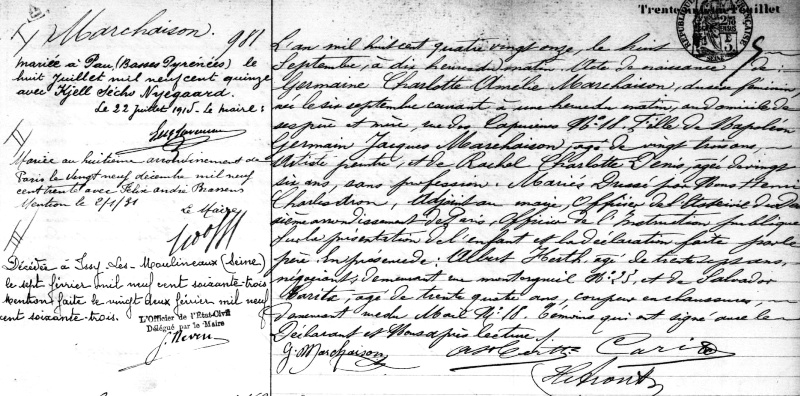 Trente et un Feuillet
Marchaison.
981
mariée à Pau (Basses Pyrénées) le
huit Juillet mil neuf cent quinze
avec Kjell Séchs Nyegaard.
Le 22 juillet 1915. Le maire :
Mariée au huitième arrondissement de
Paris le vingt neuf décembre mil neuf
cent trente avec Félix André
Mention le 2/1/31
Le Maire
Décédée à Issy-Les-Moulineaux (Seine)
le sept février mil neuf cent soixante-trois
Mention faite le vingt deux février mil neuf
cent soixante-trois.
L'Officier de l'Etat-Civil
Délégué par le Maire
L'an mil huit cent quatre vingt onze, le huit
Septembre, à dix heures du matin. Acte de naissance de
Germaine Charlotte Amélie Marchaison, du sexe féminin,
née le six septembre courant à une heure du matin, au domicile de
ses père et mère, rue des Capucines Nº 18. Fille de Napoléon
Germain Jacques Marchaison, agé de vingt trois ans,
artiste peintre, et de Rachel Charlotte Denis, agée de vingt
six ans, sans profession. Mariés. Dressé par Nous Henri
Charles, Adjoint au maire, Officier de l'Etat civil du
arrondissement de Paris, Officier de l'Instruction publique
Sur la présentation de l'enfant et la déclaration faite par le
père. En présence de : Albert Herth, agé de trente ans,
négociant, demeurant rue montorgueil Nº 25, et de Salvador
agé de trente quatre ans, coupeur en chaussures,
demeurant rue du Mail Nº 18. Témoins qui ont signé avec le
Déclarant et Nous après lecture.
G. Marchaison